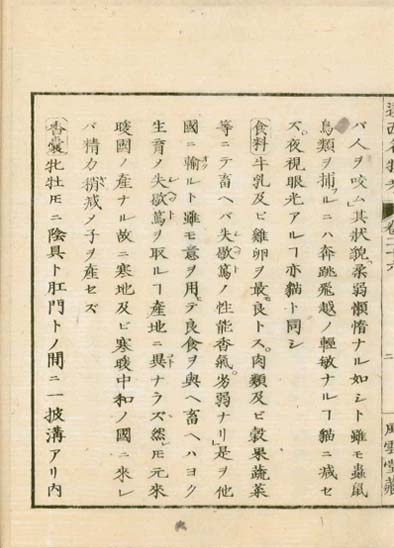 遠西名物考
卷三十六
二
風雲堂藏
バ人ヲ咬ム其狀貌柔弱懶惰ナル如シト雖モ蟲鼠
鳥類ヲ捕フルニハ奔跳飛越ノ輕敏ナルヿ貓ニ減セ
ズ夜視眼光アルヿ亦貓ト同シ
食料牛乳及ビ雞卵ヲ最良トス肉類及ビ穀果蔬菜
等ニテ畜ヘバ失歇篤ノ性能香氣劣弱ナリ是ヲ他
國ニ輸ルト雖モ意ヲ用テ良食ヲ與ヘ畜ヘハヨク
生育ノ失歇篤ヲ取ルヿ產地ニ異ナラズ然𪜈元來
暖國ノ產ナル故ニ寒地及ビ寒暖中和ノ國ニ來レ
バ精力稍減メ子ヲ產セズ
香囊牝牡𪜈ニ陰具ト肛門トノ間ニ一披溝アリ内